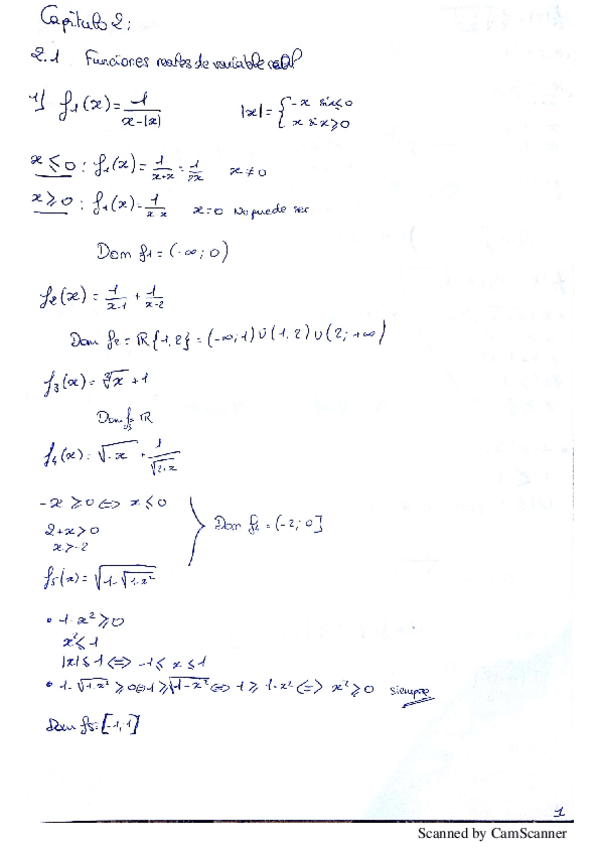 Capítulo 2:
2.1 Funciones reales de variable real
1) f₁(x) = 1/(x-|x|) |x| = { -x si x≤0
x si x≥0
x ≤ 0 : f₁(x) = 1/(x+x) = 1/2x x ≠ 0
x ≥ 0 : f₁(x) = 1/(x-x) x=0 No puede ser
Dom f₁ = (-∞; 0)
f₂(x) = 1/(x-1) + 1/(x-2)
Dom f₂ = ℝ\{1,2} = (-∞,1) ∪ (1,2) ∪ (2; +∞)
f₃(x) = ∛x + 1
Dom f₃ = ℝ
f₄(x) = √-x + 1/√(2+x)
-x ≥ 0 ⇔ x ≤ 0
2+x > 0
x > -2
Dom f₄ = (-2; 0]
f₅(x) = √(1-√(1-x²))
• 1-x² ≥ 0
x² ≤ 1
|x| ≤ 1 ⇔ -1 ≤ x ≤ 1
• 1-√(1-x²) ≥ 0 ⇔ 1 ≥ √(1-x²) ⇔ 1 ≥ 1-x² ⇔ x² ≥ 0 siempre
Dom f₅ = [-1,1]
1
Scanned by CamScanner